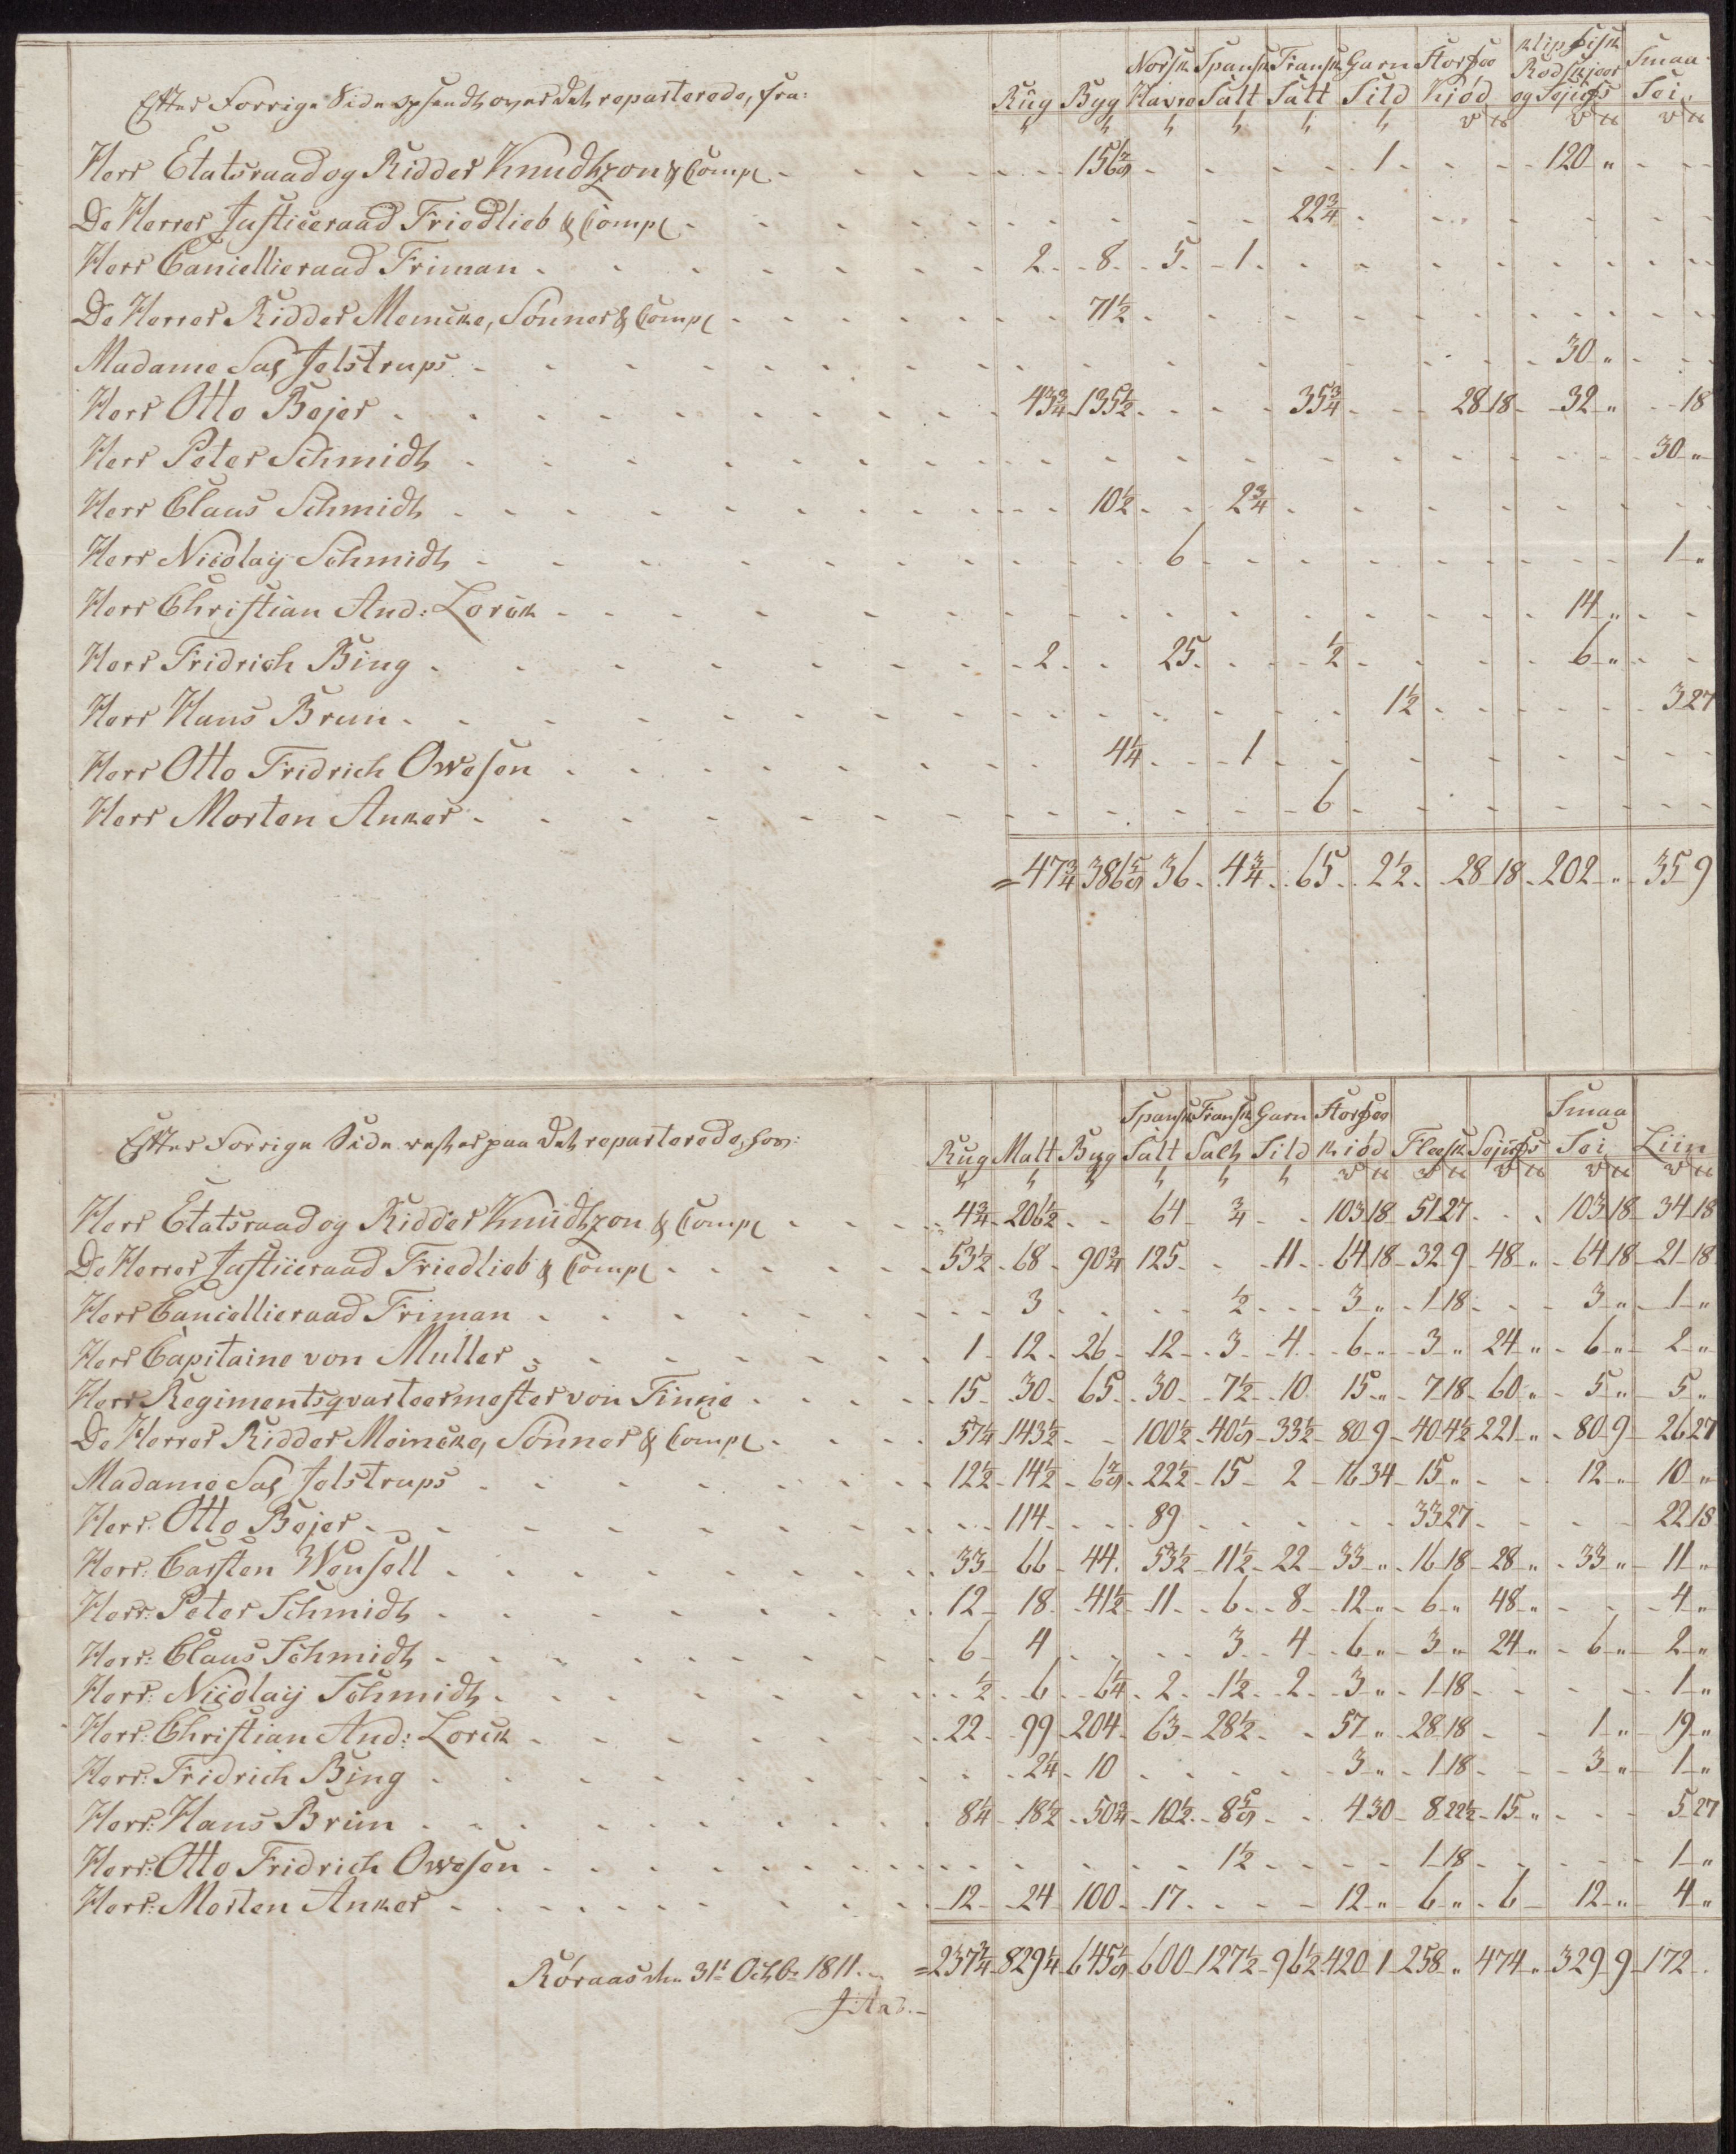 Efter Forrige Side opsendt over det reparterede, fra:
Rug Byg Norsk Havre Spansk Salt Fransk Salt Garn Sild Storfæ Kjød Klipfisk Rodskjær og Sejufs Smaa Sei
Herr Etatsraad og Ridder Knudtzon & Comp 156 1 120 „
De Herrer Justiceraad Friedlieb & Comp 22¾
Herr Cancellieraad Friman 2 8 5 1
De Herrer Ridder Meincke, Sönner & Comp 71½
Madame Sal Jelstrups 30 „
Herr Otto Bejer 43¾ 135½ 35¾ 28 18 32 „ 18
Herr Peter Schmidt 30 „
Herr Claus Schmidt 10½ 2¾
Herr Nicolaij Schmidt 6 1 „
Herr Christian And: Lorck 14 „
Herr Fridrich Bing 2 25 ½ 6 „
Herr Hans Brun 1½ 3 27
Herr Otto Fridrich Owesen 4¼ 1
Herr Morten Anker 6
= 47¾ 386 36 4¾ 65 2½ 28 18 202 „ 35 9
Efter Forrige Side rester paa det reparterede, hos:
Rug Malt Byg Spansk Salt Fransk Salt Garn Sild Storfæ kiød Flesk Sejufs Smaa Sei Liin
Herr Etatsraad og Ridder Knudtzon & Comp 4¾ 206½ 64 ¾ 103 18 51 27 103 18 34 18
De Herrer Justiceraad Friedlieb & Comp 53½ 68 90¾ 125 11 64 18 32 9 48 „ 64 18 21 18
Herr Cancellieraad Friman 3 ½ 3 „ 1 18 3 „ 1 „
Herr Capitaine von Muller 1 12 26 12 3 4 6 „ 3 „ 24 „ 6 „ 2 „
Herr Regimentsqvarteermester von Finne 15 30 65 30 7½ 10 15 „ 7 18 60 „ 5 „ 5 „
De Herrer Ridder Meincke, Sönner & Comp 57¼ 143½ 100½ 40 33½ 80 9 40 4½ 221 „ 80 9 26 27
Madame Sal Jelstrups 12½ 14½ 6 22½ 15 2 16 34 15 „ 12 „ 10 „
Herr: Otto Bejer 114 89 33 27 22 18
Herr: Carsten Wensell 33 66 44 53½ 11½ 22 33 „ 16 18 28 „ 33 „ 11 „
Herr: Peter Schmidt 12 18 41½ 11 6 8 12 „ 6 „ 48 „ 4 „
Herr: Claus Schmidt 6 4 3 4 6 „ 3 „ 24 „ 6 „ 2 „
Herr: Nicolaij Schmidt ½ 6 6¼ 2 1½ 2 3 „ 1 18 1 „
Herr: Christian And: Lorck 22 99 204 63 28½ 57 „ 28 18 1 „ 19 „
Herr: Fridrich Bing 2¼ 10 3 „ 1 18 3 „ 1 „
Herr: Hans Brun 8¼ 18½ 50¾ 10½ 8 4 30 8 22½ 15 „ 5 27
Herr: Otto Fridrich Owesen 1½ 1 18 1 „
Herr: Morten Anker 12 24 100 17 12 „ 6 „ 6 12 „ 4 „
= 237¾ 829¼ 645 600 127½ 96½ 420 1 258 „ 474 „ 329 9 172
Röraas den 31t Octbr 1811.